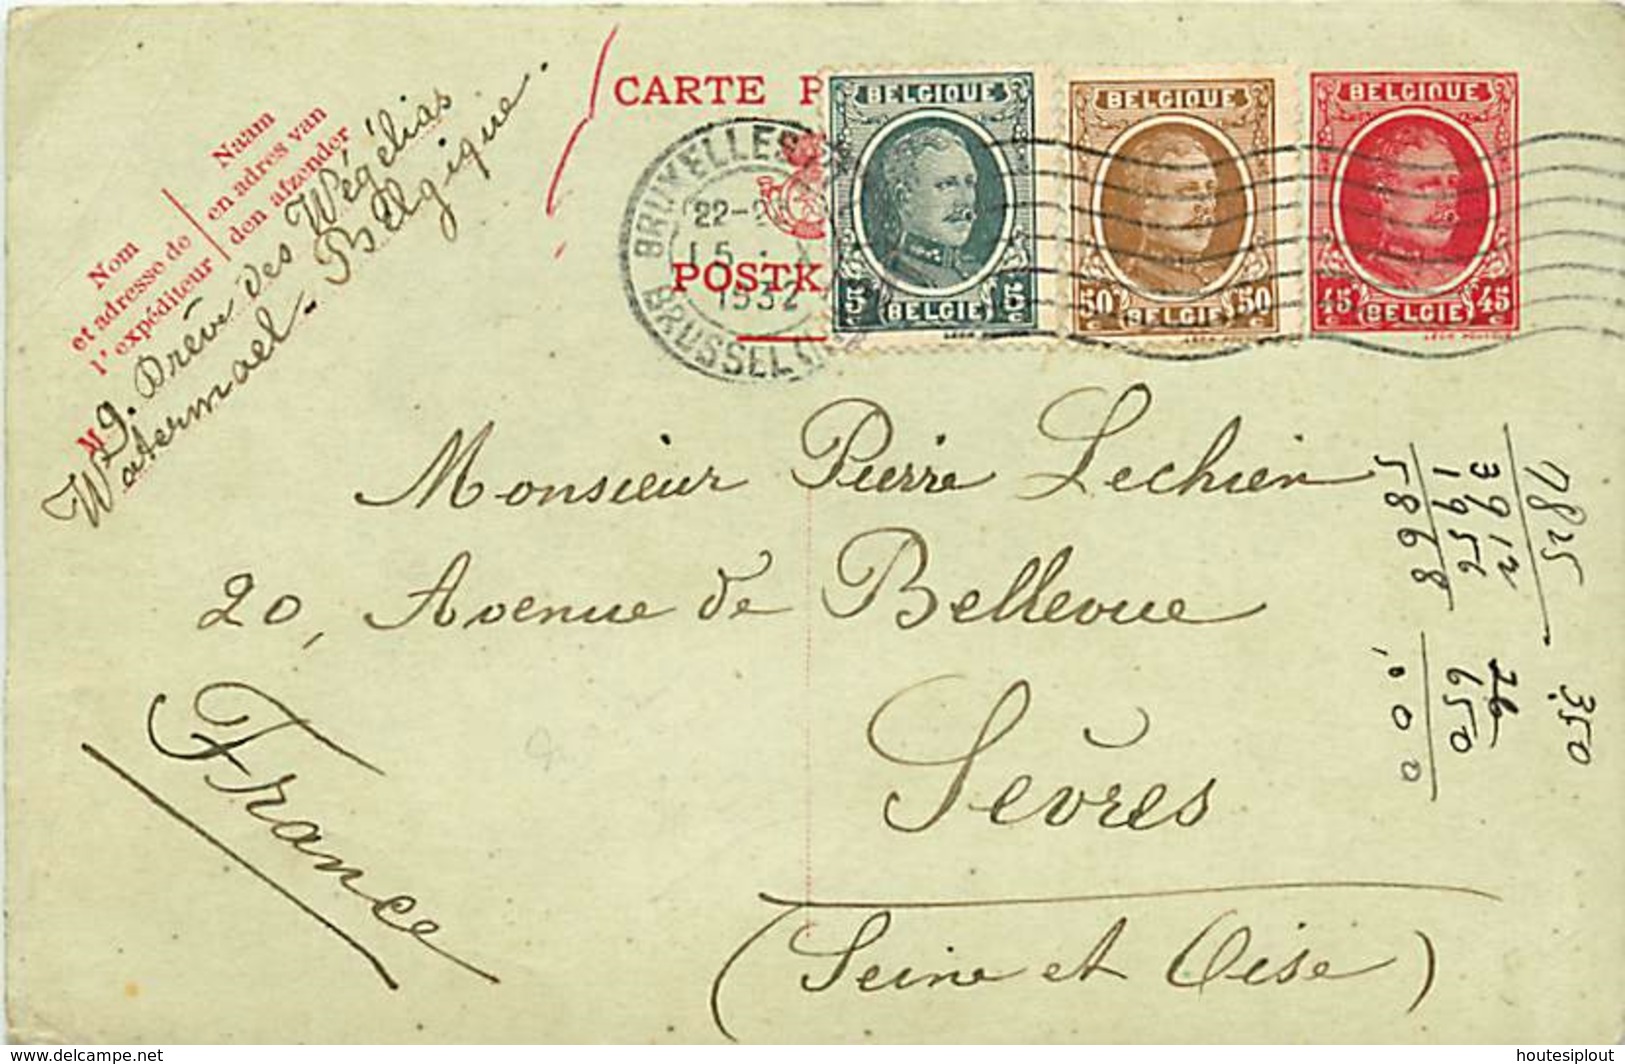 CARTE P
POSTK
Nom
et adresse de
l'expéditeur
Naam
en adres van
den afzender
9. Drève des Wégélias
Watermael - Belgique.
BRUXELLES
22-2
15
1932
BRUSSEL
BELGIQUE
5c 5c
BELGIE
BELGIQUE
50c 50c
BELGIE
BELGIQUE
45c 45c
BELGIE
Monsieur Pierre Lechien
20, Avenue de Bellevue
Sèvres
(Seine et Oise)
France
7825
3912
1956
5868
350
650
delcampe.net
houtesiplout